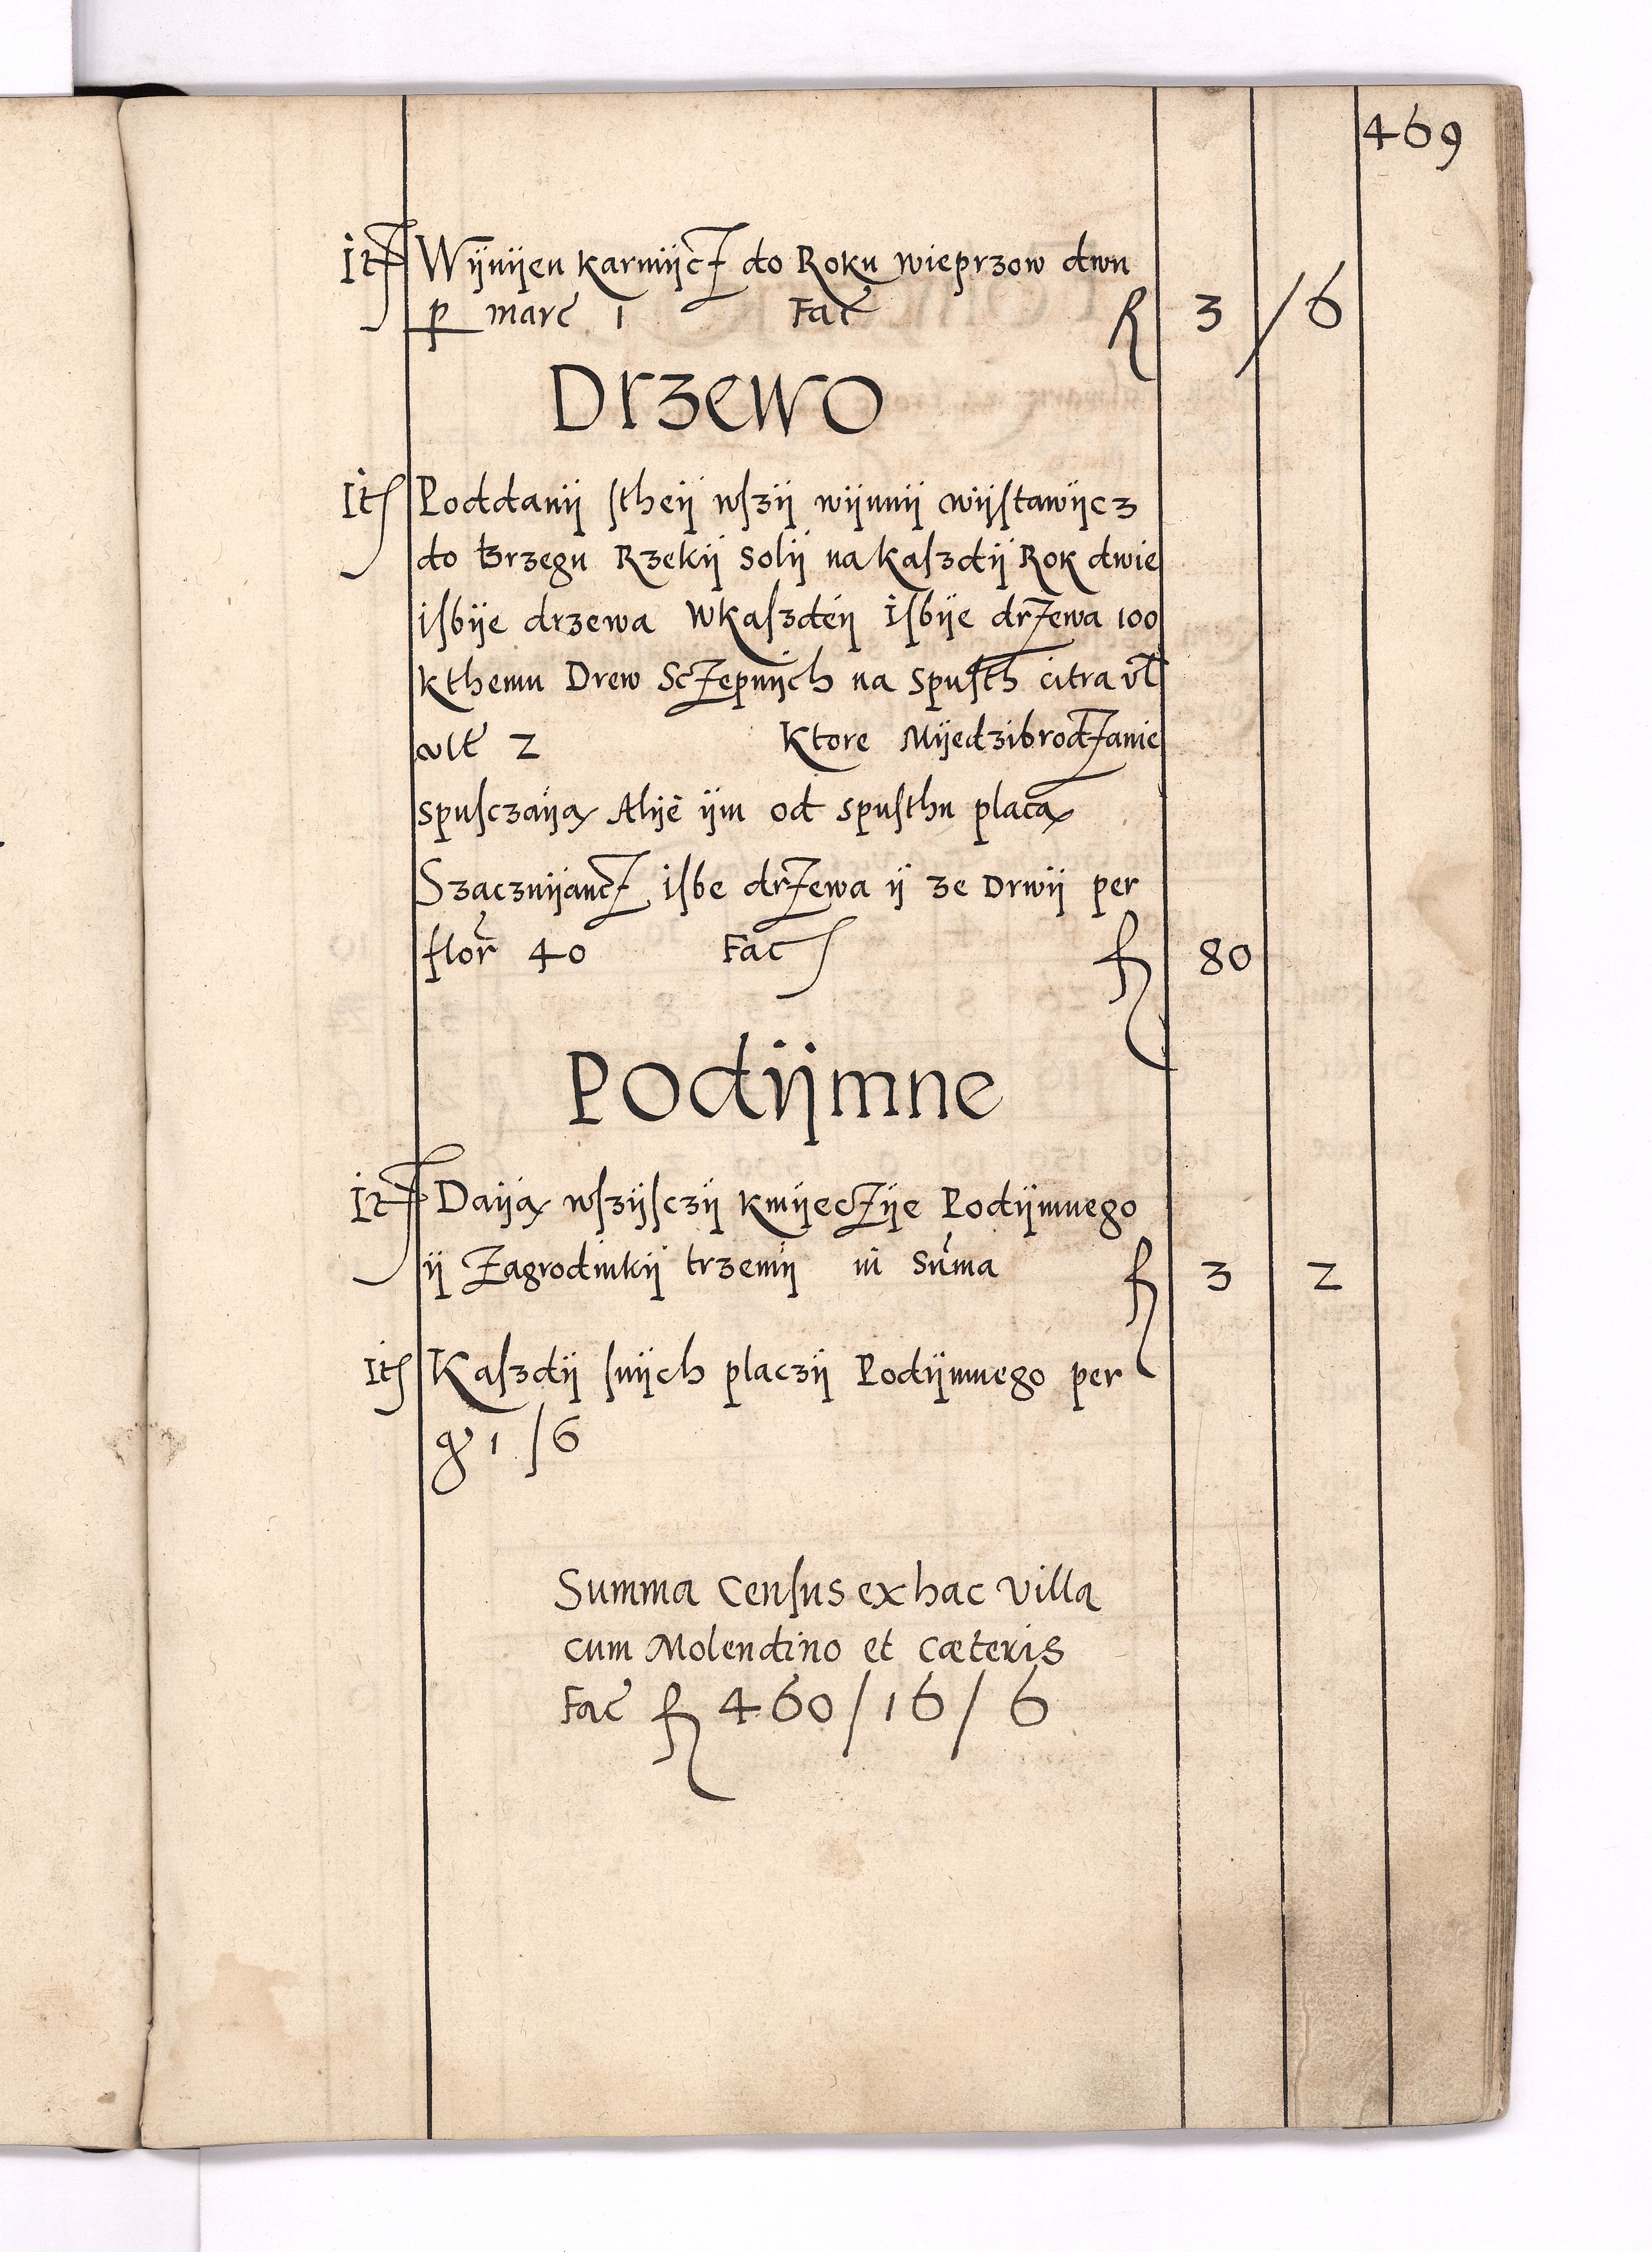 469
Itſ Wijnijen karmijcz do Roku wieprzow dwu
p marc 1 Fac f 3 /6
Drzewo
Itſ Poddanij ſtheij wſzij wijnnij wijſtawijcz
do brzegu Rzekij Solij na kaſzdij Rok dwie
iſbije drzewa Wkaſzdeij iſbije drzewa 100
kthemu Drew Sczepnijch na Spuſth citra vl
vlt 2 Ktore Mijedzibrodzanie
spuſczaija Alije ijm od spuſthu placa
Szacznijancz iſbe drzewa ij ze Drwij per
flor 40 Fac f 80
Podijmne
Itſ Daija wſzijſczij kmijeczije Podijmnego
ij Zagrodnikij trzemij in Suma f 3 2
Itſ Kaſzdij ſnijch placzij Podijmnego per
gr 1 /6
Summa Cenſus ex hac Villa
cum Molendino et Cæteris
Fac f 460/16/6